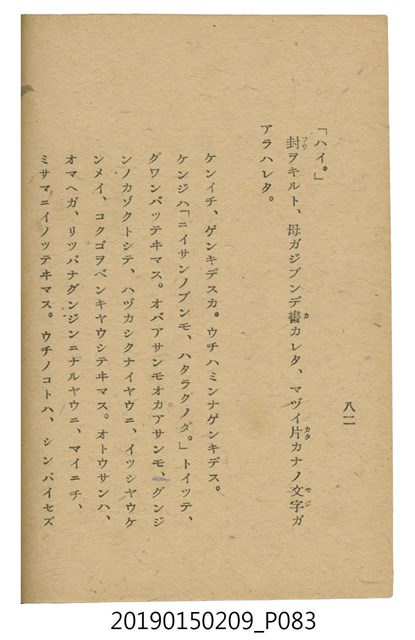 「ハイ。」
封ヲキルト、母ガジブンデ書カレタ、マヅイ片カナノ文字ガ
フウ
カ
カタ
モジ
アラハレタ。
ケンイチ、ゲンキデスカ。ウチハミンナゲンキデス。
ケンジハ「ニイサンノブンモ、ハタラグノダ。」トイッテ、
グワンバッテヰマス。オバアサンモオカアサンモ、グンジ
ンノカゾクトシテ、ハヅカシクナイヤウニ、イッシヤウケ
ンメイ、コクゴヲベンキヤウシテヰマス。オトウサンハ、
オマヘガ、リッパナグンジンニナルヤウニ、マイニチ、
ミサマニイノッテヰマス。ウチノコトハ、シンパイセズ
八二
20190150209_P083